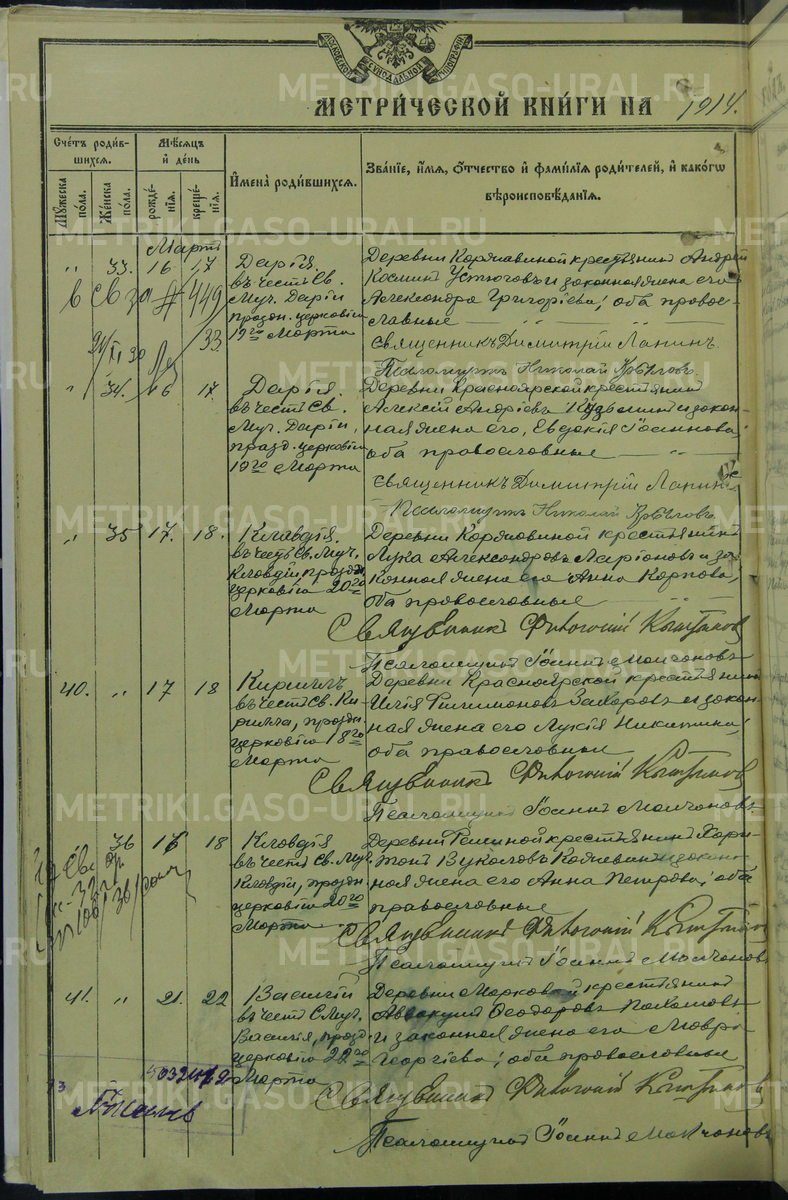 МОСКОВСКОЙ СѴНОДАЛЬНОЙ ТИПОГРАФІИ
МЕТРИ́ЧЕСКОЙ КНИ́ГИ НА 1914.
Сче́тъ роди́в-
шихся.
Мѣ́сяцъ
и҆ де́нь
И҆мена̀ роди́вшихся.
Зва́нїе, и҆́мя, ѻ҆́тчество и҆ фами́лїя роди́телей, и҆ како́гѡ
вѣроисповѣ́данїя.
Мꙋ́жеска по́ла.
Же́нска по́ла.
рожде́-нїя.
креще́-нїя.
Мартъ
" 33. 16 17
Дарія.
въ честь Св.
Муч. Даріи
праздн. церковію
19го Марта
Деревни Коржавиной крестьянинъ Андрей
Косминъ Устюговъ и законная жена его
Александра Григоріева; оба право-
славные
Священникъ Димитрій Лапинъ
Псаломщикъ Николай
в св за # 449
33.
" 34. 16 17.
Дарія.
въ честь Св.
Муч. Даріи,
празд. церковію
19го Марта
Деревни Красноярской крестьянинъ
Алексій Андріевъ Кузьминъ и закон-
ная жена его, Евдокія Іоаннова;
оба православные
Священникъ Димитрій Лапинъ
Псаломщикъ Николай
" 35 17. 18.
Клавдія.
въ честь Св. Муч.
Клавдіи, праздн.
церковію 20го
Марта
Деревни Коржавиной крестьянинъ
Лука Александровъ Ларіоновъ и за-
конная жена его Анна Карпова;
оба православные
Священникъ
Псаломщикъ Іоаннъ Молчановъ
40. " 17 18
Кириллъ
въ честь Св. Ки-
рилла, праздн.
церковію 18го
Марта
Деревни Красноярской крестьянинъ
Илія Филимоновъ Захаровъ и закон-
ная жена его Лукія Никитина;
оба православные
Священникъ
Псаломщикъ Іоаннъ Молчановъ
36 18
Клавдія
въ честь Св. Муч.
Клавдіи, праздн.
церковію 20го
Марта
Деревни крестьянинъ Хари-
тонъ Вуколовъ и закон-
ная жена его Анна Петрова; оба
православные
Священникъ
Псаломщикъ Іоаннъ Молчановъ
41. " 21. 22
Василій
въ честь С. Муч.
Василія, празд.
церковію 22го
Марта
Деревни Марковой крестьянинъ
Аввакумъ Ѳеодоровъ
и законная жена его Мавра
Георгіева; оба православные
Священникъ
Псаломщикъ Іоаннъ Молчановъ
METRIKI.GASO-URAL.RU